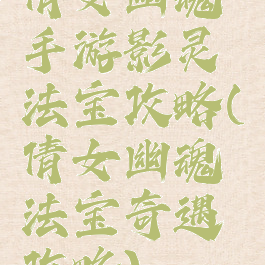 倩女幽魂
手游影灵
法宝攻略(
倩女幽魂
法宝奇遇
攻略)